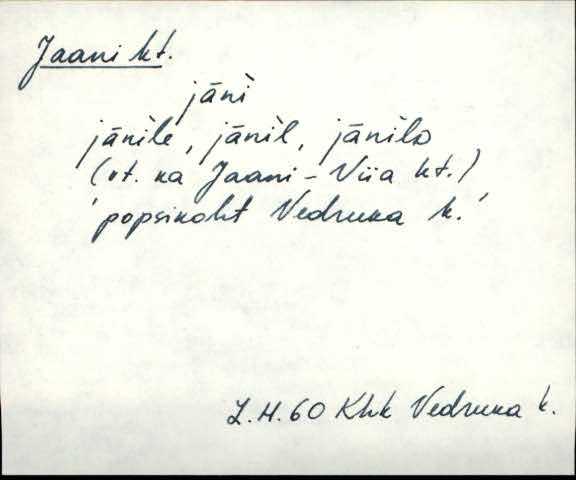 Jaani kt.
jāni
jānile, jānil, jānilo
(vt. ka Jaani-Viia kt.)
'popsikoht Vedruka k.'
L.H. 60 Khk Vedruka k.